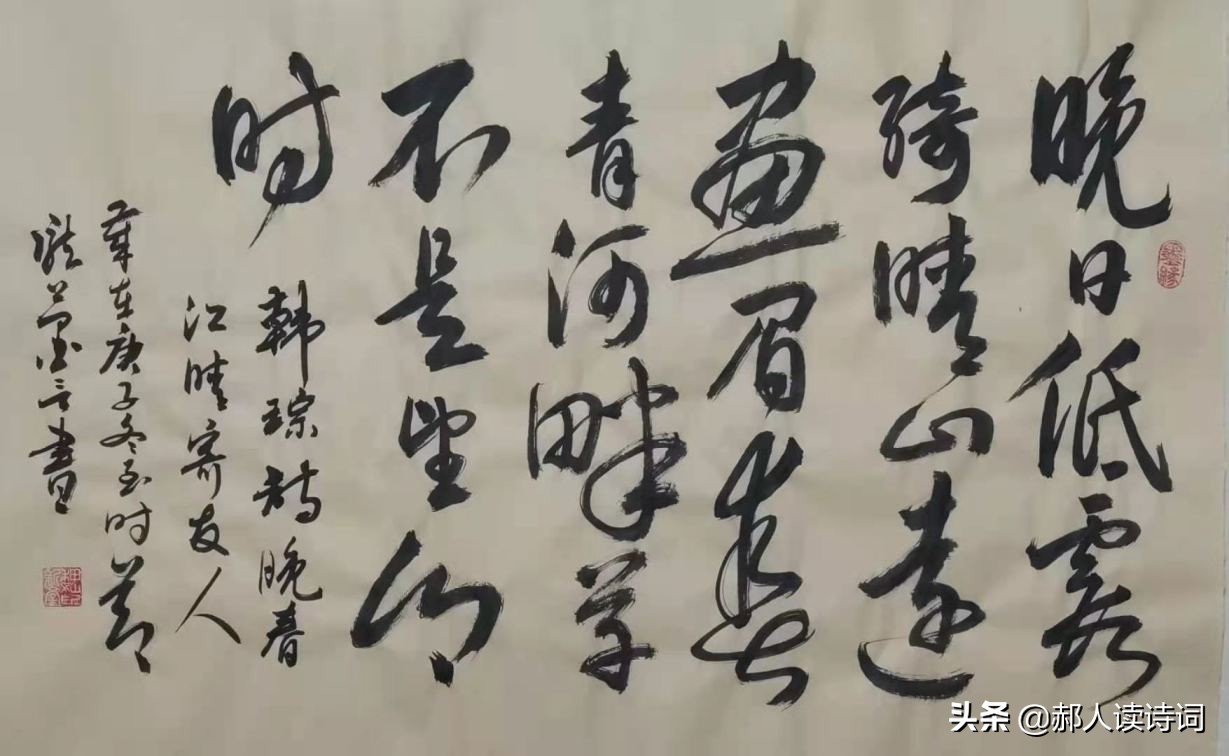 晚日低霞
绮晴山远
画眉春
青河畔草
不是望乡
时
韩琮诗晚春
江晴寄友人
岁在庚子冬至时节
墨言书
头条 @郝人读诗词